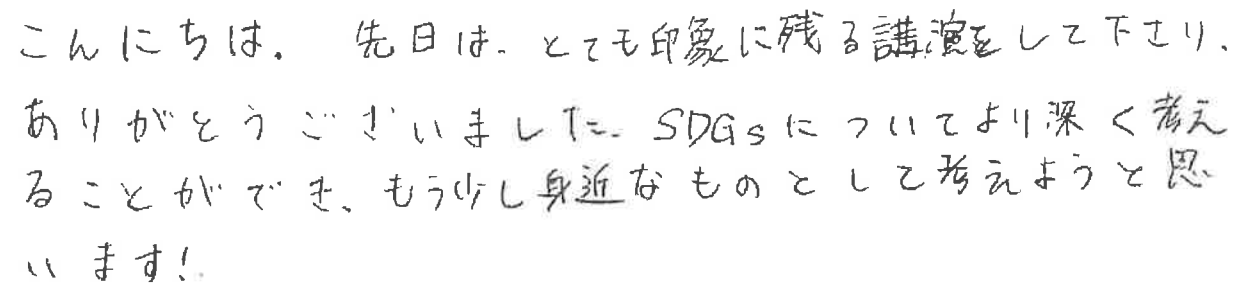 こんにちは。先日は、とても印象に残る講演をして下さり、
ありがとうございました。SDGsについてより深く考え
ることができ、もう少し身近なものとして考えようと思
います!